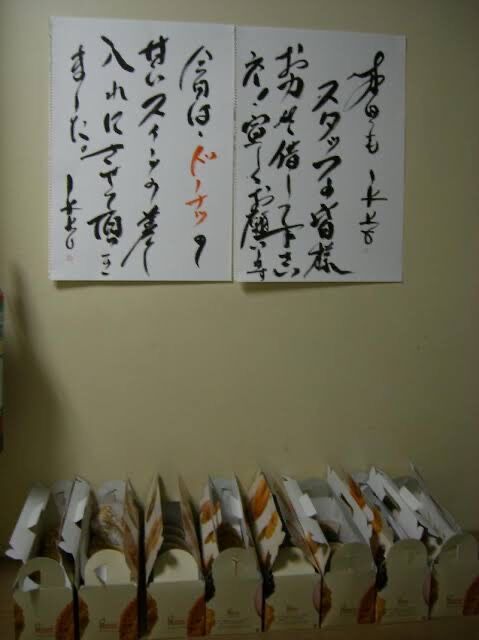 本日も
スタッフの皆様
お力を借して下さい
宜しくお願います
今日は、ドーナッツの
甘いスイーツの差し
入れにさせて頂き
ました。